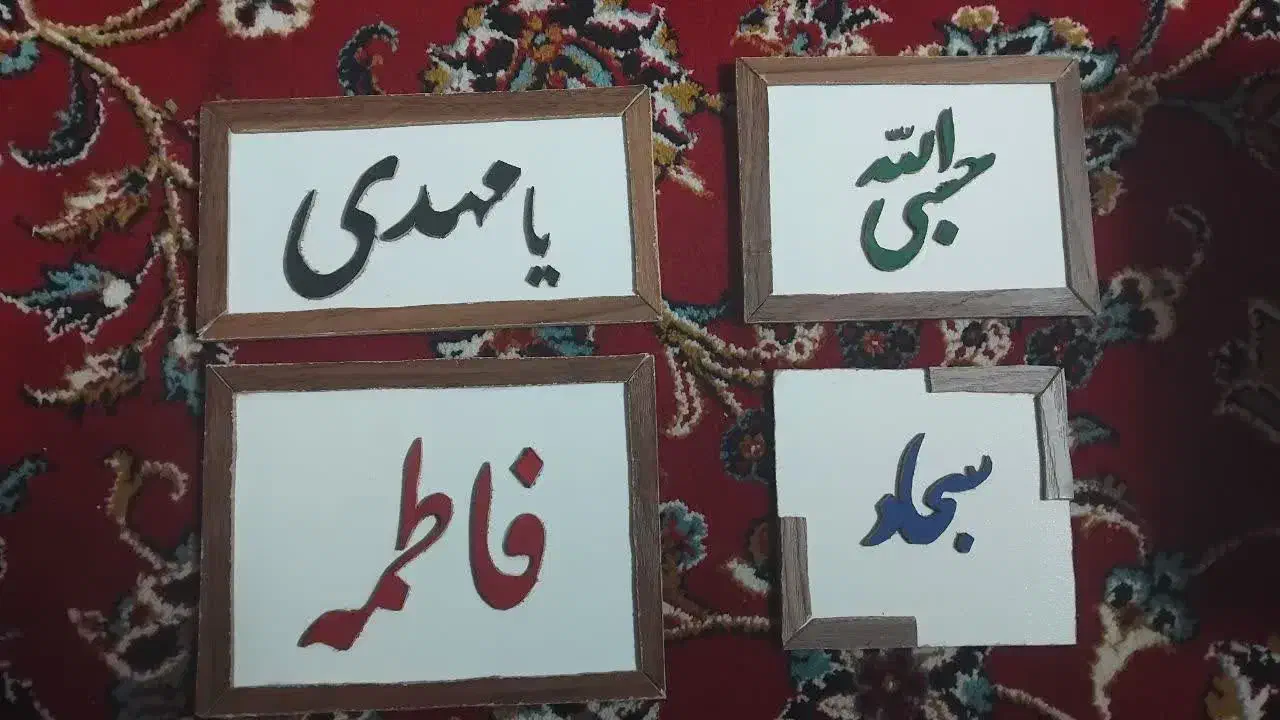 یا مهدی
حسبی الله
فاطمه
سجاد